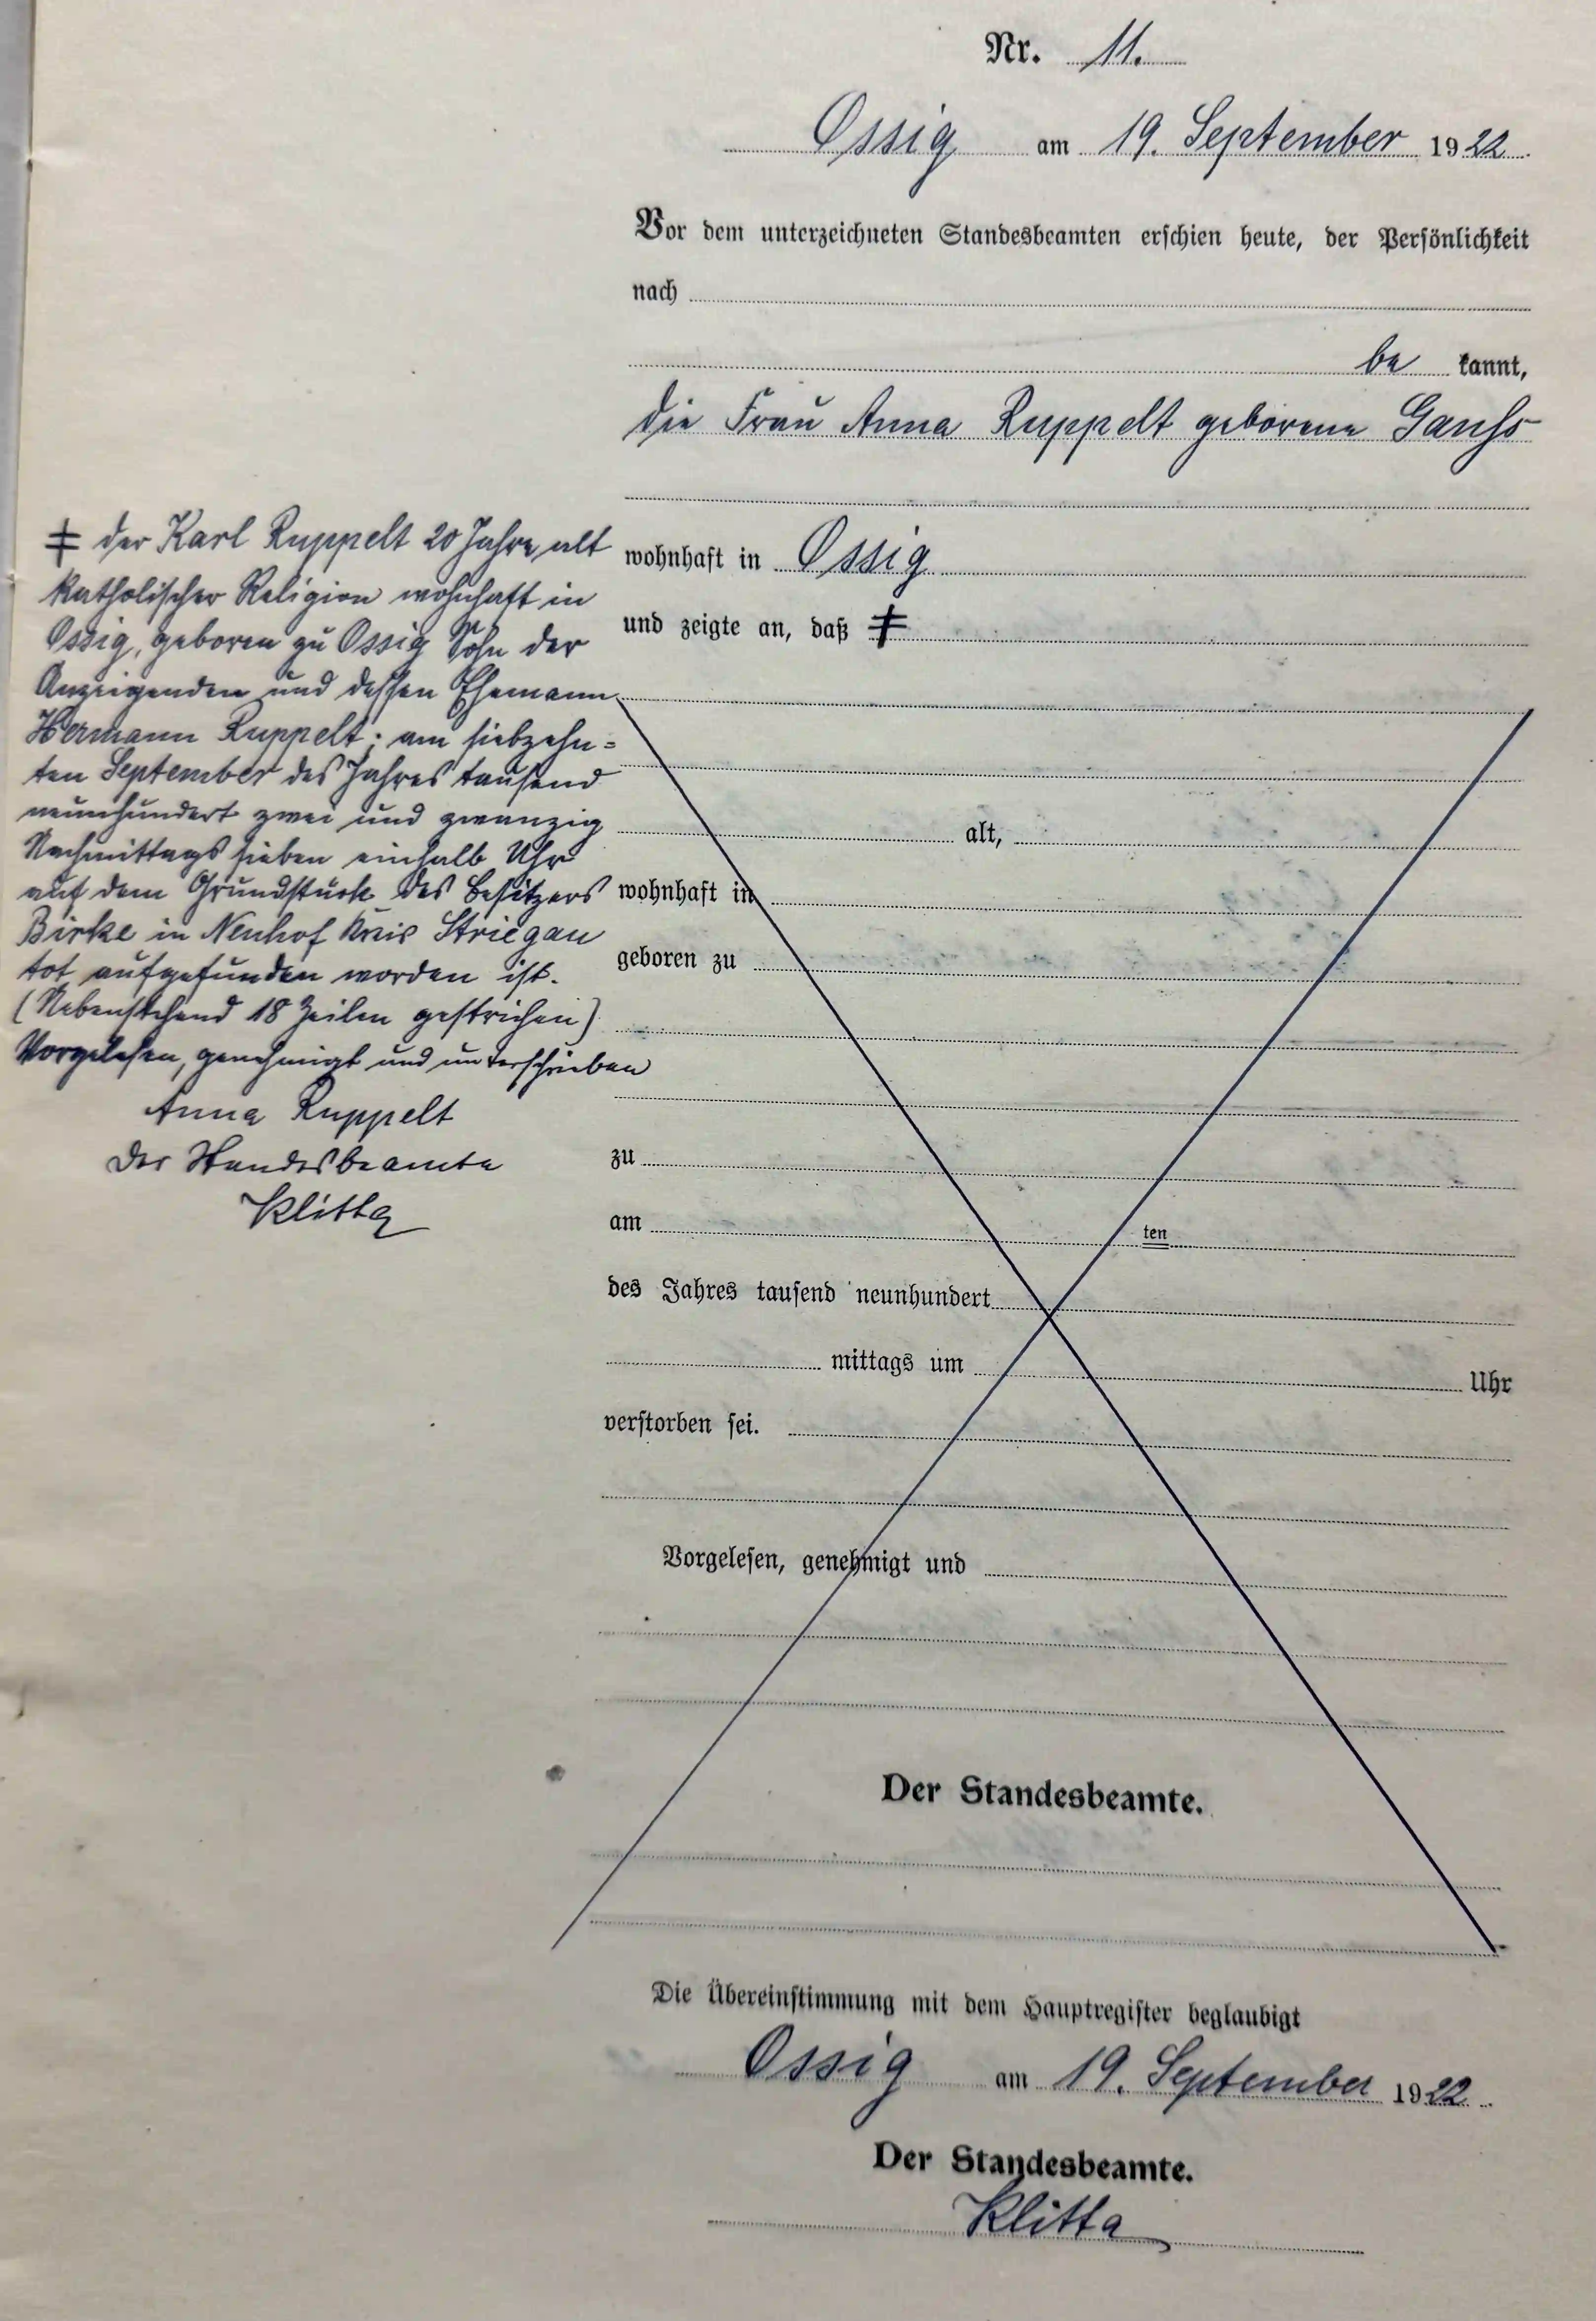 Nr. 11.
Ossig am 19. September 1922.
Vor dem unterzeichneten Standesbeamten erschien heute, der Persönlichkeit
nach
be kannt,
die Frau Anna Ruppelt geborene
wohnhaft in Ossig
und zeigte an, daß ‡
‡ der Karl Ruppelt 20 Jahre alt
katholischer Religion wohnhaft in
Ossig, geboren zu Ossig Sohn der
Anzeigenden und dessen Ehemann
Hermann Ruppelt; am siebzehn=
ten September des Jahres tausend
neunhundert zwei und zwanzig
Nachmittags sieben einhalb Uhr
auf dem Grundstück des Besitzers
Birke in Neuhof Kreis Striegau
tot aufgefunden worden ist.
(Nebenstehend 18 Zeilen gestrichen)
Vorgelesen, genehmigt und unterschrieben
Anna Ruppelt
Der Standesbeamte
Klitta
alt,
wohnhaft in
geboren zu
zu
am ten
des Jahres tausend neunhundert
mittags um Uhr
verstorben sei.
Vorgelesen, genehmigt und
Der Standesbeamte.
Die Übereinstimmung mit dem Hauptregister beglaubigt
Ossig am 19. September 1922.
Der Standesbeamte.
Klitta